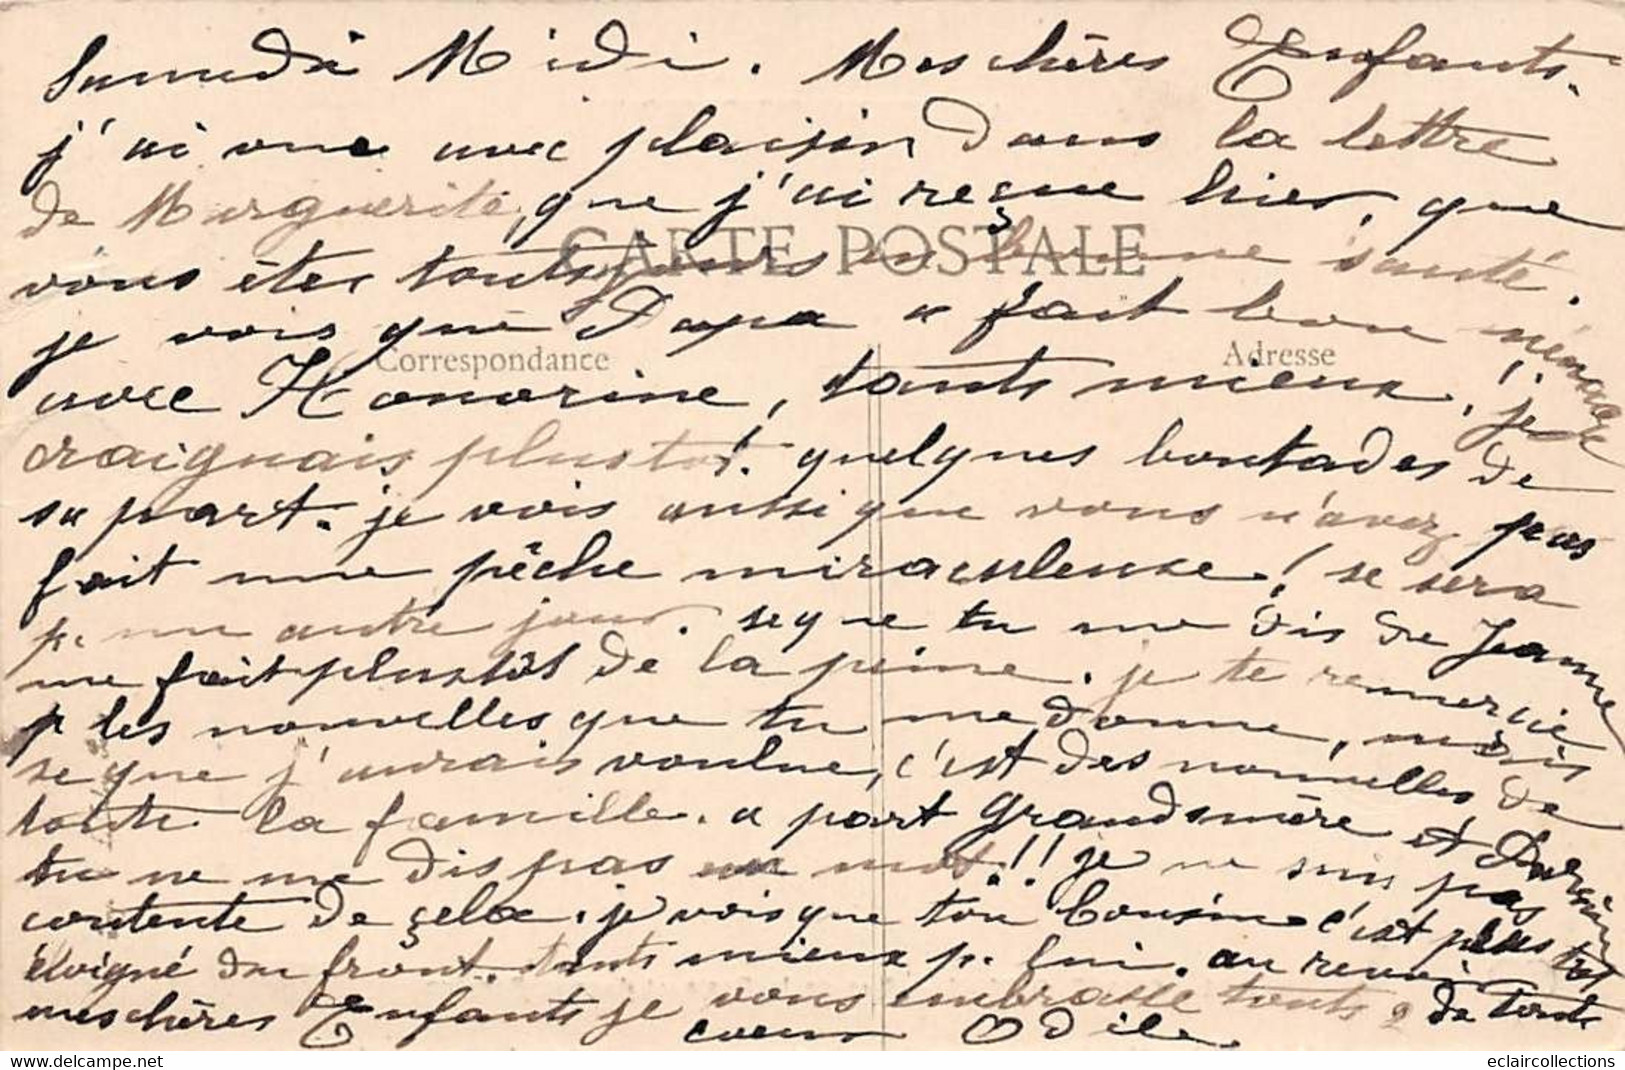 Samedi Midi. Mes chères Enfants.
j'ai vue avec plaisir dans la lettre
de Marguerite, que j'ai reçue hier, que
CARTE POSTALE
vous êtes touts toujours en bonne santé.
je vois que Papa a fait bon ménage
Correspondance
Adresse
avec Honorine, tants mieux. ! je
craignais plustot! quelques boutades de
sa part. je vois aussi que vous n'avez pas
fait une pêche miraculeuse! se sera
p. un autre jour. se que tu me dis de Jeanne
me fait plustôt de la peine. je te remercie
p les nouvelles que tu me donne, mais
se que j'aurais voulue, c'est des nouvelles de
toute la famille. a part Grandsmère et Parain
tu ne me dis pas un mot!!! je ne suis pas
contente de çela. je vois que ton Cousin c'est plus
éloigné du front. tants mieux p. lui. au revoir
mes chères Enfants je vous embrasse touts de tout
coeur Odile.
delcampe.net
eclaircollections